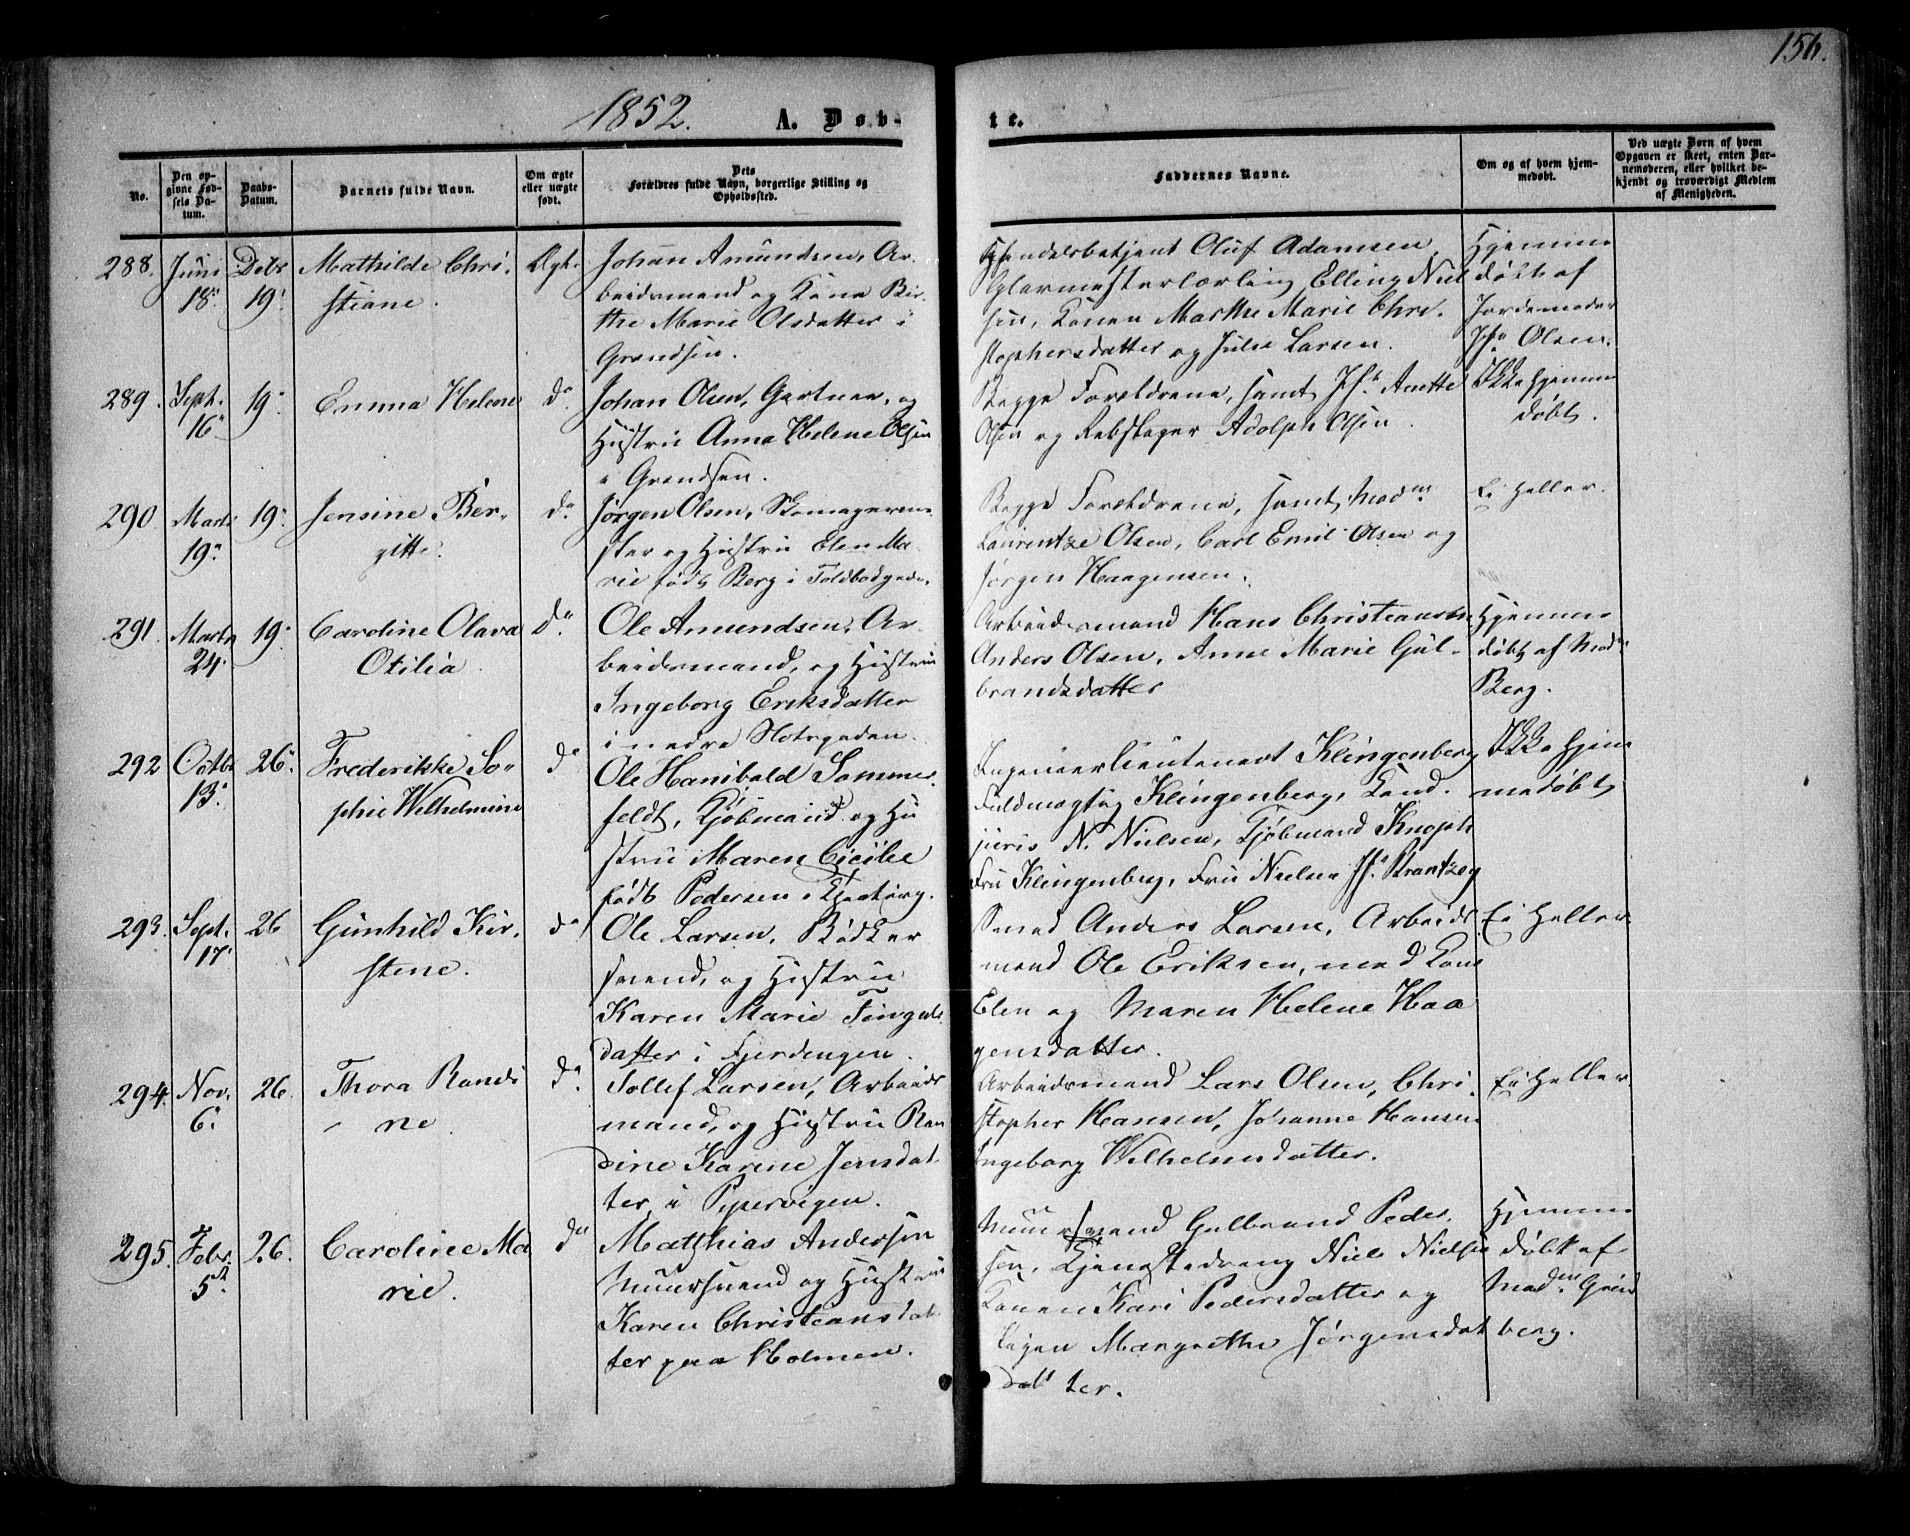 156.
1852. A. Døb- te.
No.
Den op-
givne Fød-
sels Da-
tum.
Daabs-
Datum.
Barnets fulde Navn.
Om ægte
eller uægte
født.
Dets
Forældres fulde Navn, borgerlige Stilling og
Opholdssted.
Faddernes Navne.
Om og af hvem hjem-
medøbt.
Ved uægte Børn af hvem
Opgaven er skeet, enten Bar-
nemoderen, eller hvilket be-
kjendt og troværdigt Medlem
af Menigheden.
288. Juni
18.
Debr
19.
Mathilde Chri-
stiane.
Ægt.
Johan Amundsen, Ar-
beidsmand og Kone Bir-
the Marie Olsdatter i
Grændsen.
Handelsbetjent Oluf Adamsen,
Glarmesterlærling Elling Niel
sen, Konen Marthe Marie Chri-
stophersdatter og Julie Larsen.
Hjemme
døbt af
Jordemoder
Jfr Olsen.
289. Sept.
16
19.
Emma Helene
do.
Johan Olsen, Gartner, og
Hustru Anna Helene Olsen
i Grændsen.
Begge Forældrene, samt Jfr. Anette
Olsen og Rebslager Adolph Olsen.
Ikke hjemme
døbt.
290 Marts
19.
19.
Jensine Ber-
gitte.
do.
Jørgen Olsen, Skomagerme-
ster og Hustru Elen Ma-
rie født Berg i Toldbodgaden.
Begge Forældrene, samt Madm
Laurentze Olsen, Carl Emil Olsen og
Jørgen Haagensen.
Ei heller.
291. Marts
24.
19.
Caroline Olava
Otilia.
do.
Ole Amundsen, Ar-
beidsmand, og Hustru
Ingeborg Eriksdatter
i nedre Slotsgaden.
Arbeidsmand Hans Christiansen,
Anders Olsen, Anne Marie Gul-
brandsdatter
Hjemme
døbt af Madm
Berg.
292 Octbr
13.
26.
Frederikke So-
phie Wilhelmine
do
Ole Hanibald Sommer-
feldt, Kjøbmand og Hu
stru Maren Cicilie
født Pedersen i
Ingenieurlieutenant Klingenberg
Fuldmægtig Klingenberg, Cand.
juris N. Nielsen, Kjøbmand Knoph
Fru Klingenberg, Fru Nielsen Jfr. Krantzog
Ikke hjem
medøbt
293. Sept.
17.
26
Gunhild Kir-
stene.
do
Ole Larsen, Bødker
svend, og Hustru
Karen Marie Tingels
datter i Fjerdingen.
Smed Anders Larsen, Arbeids
mand Ole Eriksen, med Kone
Elen og Maren Helene Haa
gensdatter.
Ei heller
294. Nov.
6.
26.
Thora Randi
ne.
do.
Tollef Larsen, Arbeids
mand, og Hustru Ran
dine Karine Jensdat
ter i Pipervigen.
Arbeidsmand Lars Olsen, Chri-
stopher Hansen, Johanne Hansen
Ingeborg Wilhelmsdatter.
Ei heller
295. Febr.
5.
26.
Caroline Ma
rie.
do
Matthias Andersen
Muursvend og Hustru
Karen Christiansdat
ter paa Holmen.
Muursvend Gulbrand Peder-
sen, Tjenestedreng Niels Nielsen
Konen Kari Pedersdatter og
Pigen Margrethe Jørgensdat
ter.
Hjemme
døbt af
Madm. Grønd
berg.